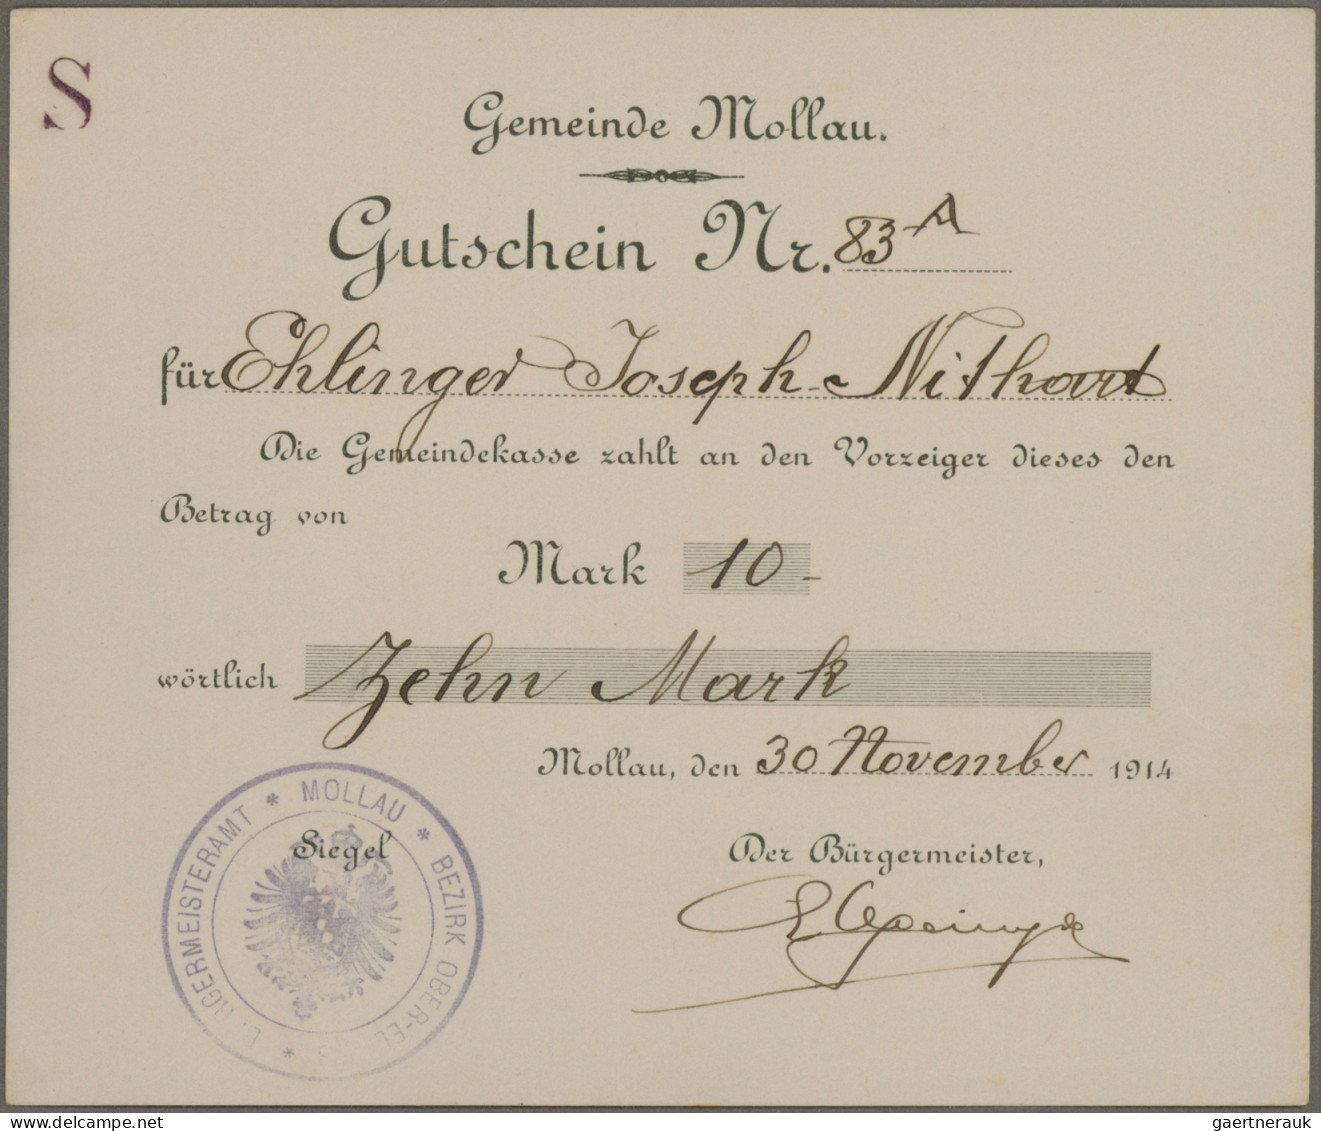 S
Gemeinde Mollau.
Gutschein Nr. 83 A
für Ehlinger Joseph - Nithart
Die Gemeindekasse zahlt an den Vorzeiger dieses den
Betrag von
Mark 10 -
wörtlich Zehn Mark
Mollau, den 30 November 1914
Siegel
Der Bürgermeister,
RGERMEISTERAMT * MOLLAU * BEZIRK OBER-EL *
gaertnerauk